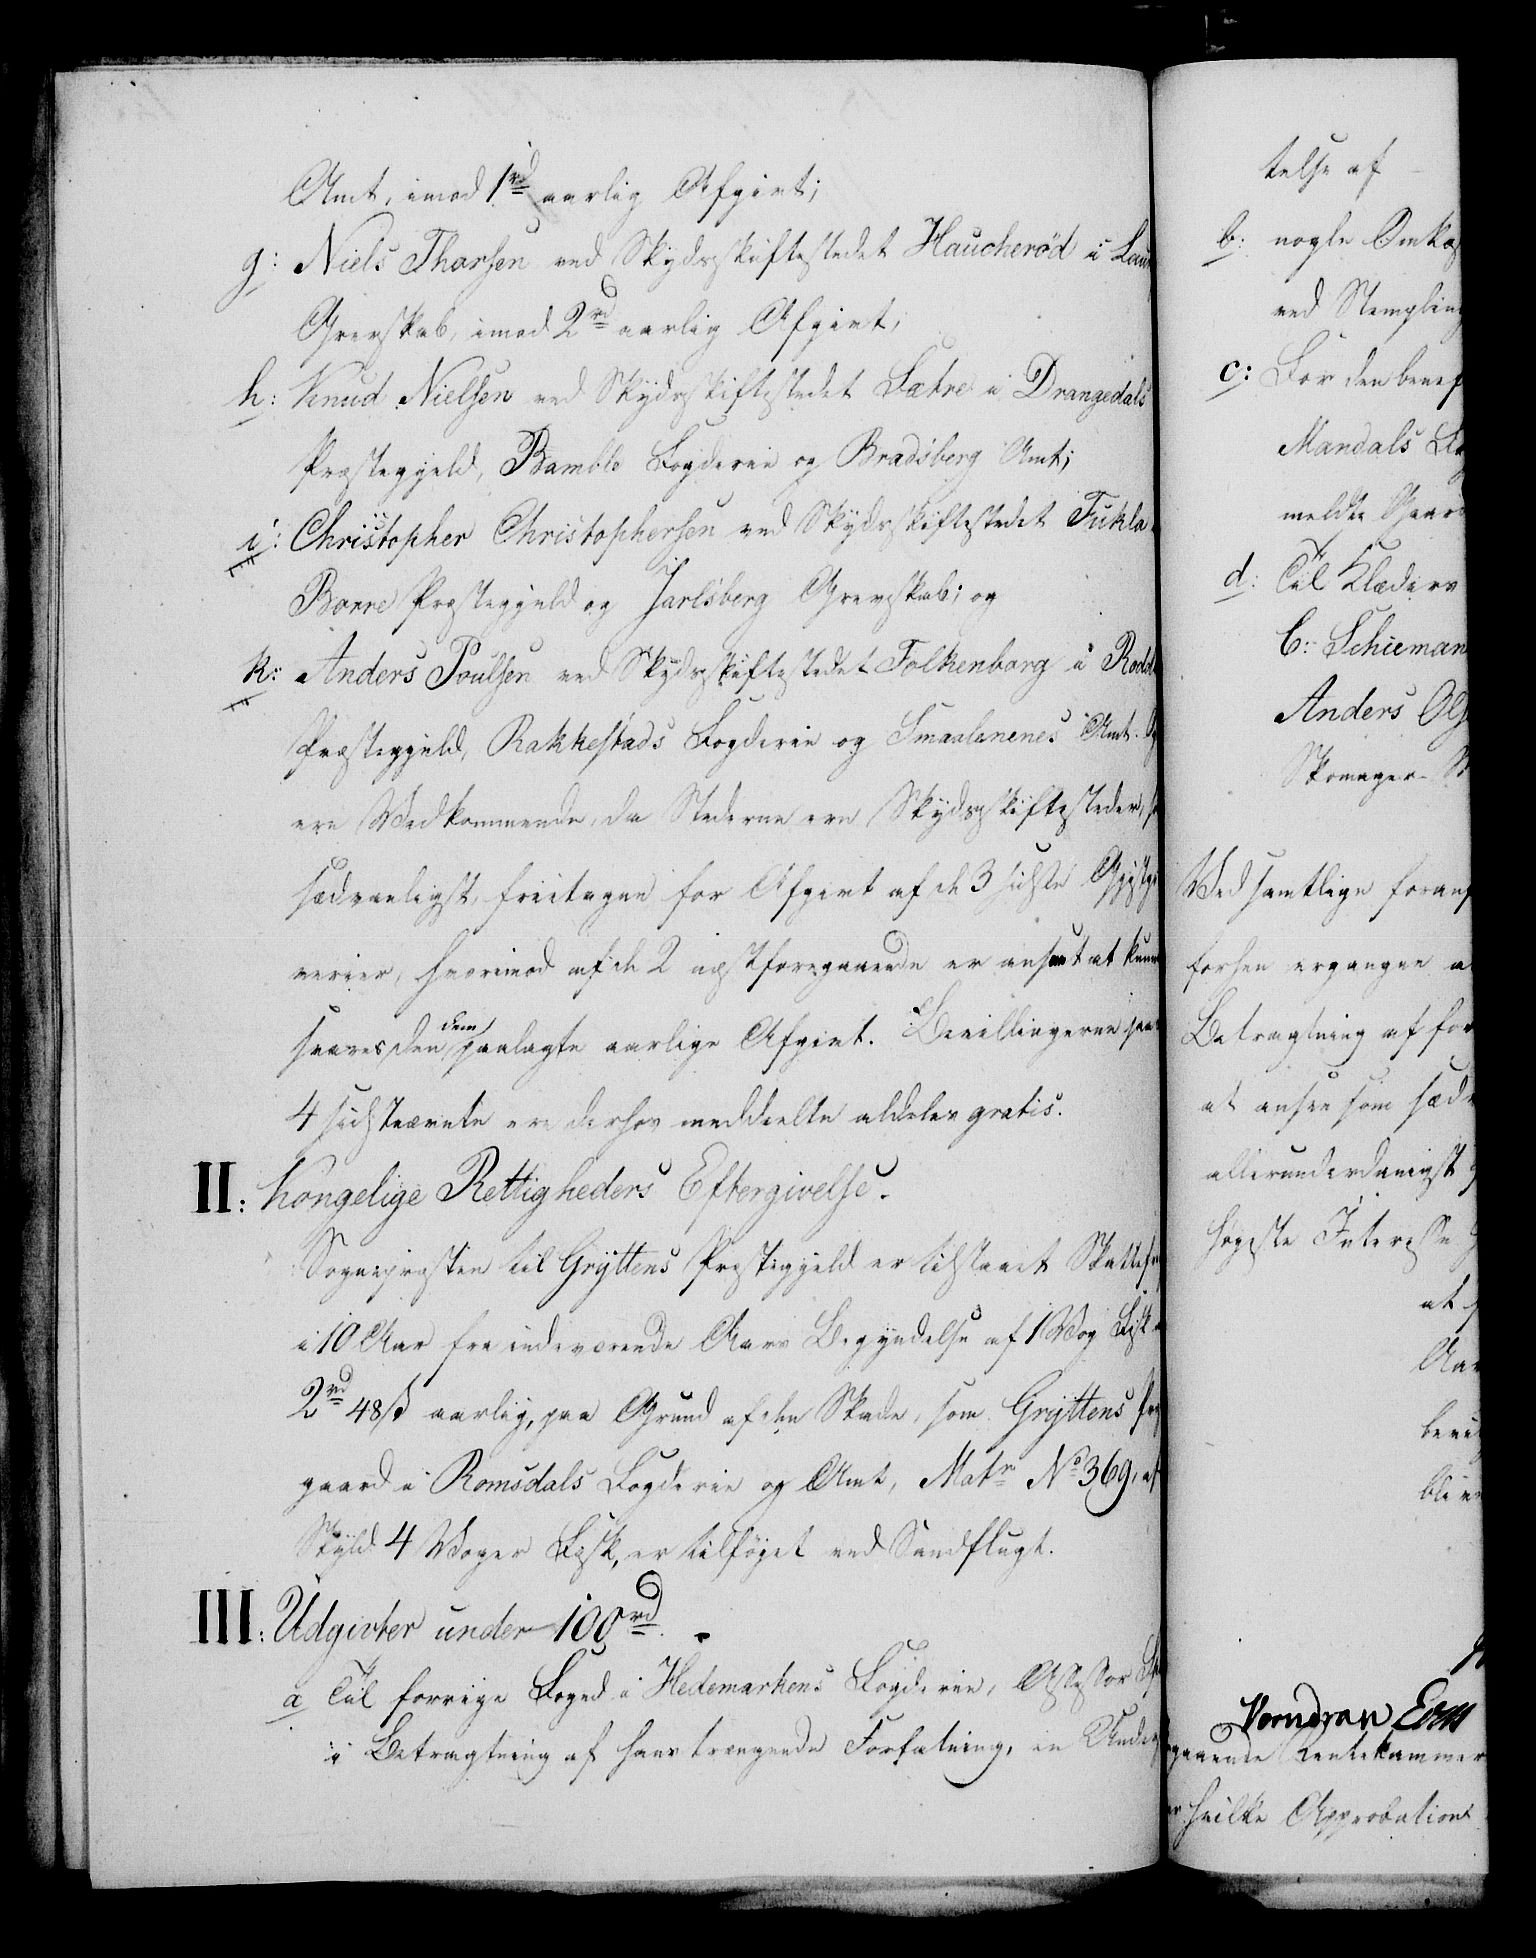 Amt, imod 1rd aarlig Afgivt;
g: Niels Thorsen ved Skydsskiftestedet Haucherød i Lau
Grevskab, imod 2rd aarlig Afgivt;
h: Knud Nielsen ved Skydsskiftestedet Sætre i Drangedals
Præstegjeld, Bamble Fogderie og Bradsberg Amt;
i: Christopher Christophersen ved Skydsskiftestedet
Borre Præstegjeld og Jarlsberg Grevskab; og
k: Anders Poulsen ved Skydsskiftestedet Folkenborg i
Præstegjeld, Rakkestads Fogderie og Smaalenenes Amt.
ere Vedkommende, da Stederne ere Skydsskiftesteder,
sædvanligst, fritagne for Afgivt af de 3 sidste Gjæstgi
verier, hvorimod af de 2 næstforegaaende er anseet at kunne
svares den dem paalagte aarlige Afgivt. Bevillingerne paa
4 sidstnævnte ere derhos meddeelte aldeles gratis.
II: Kongelige Rettigheders Eftergivelse.
Sognepræsten til Gryttens Præstegjeld er tilstaaet Skattefr
i 10 Aar fra indeværende Aars Begyndelse af 1 Vog Fisk
2rd 48ß aarlig, paa Grund af den Skade, som Gryttens Præ
gaard i Romsdals Fogderie og Amt, Matr No 369, af
Skyld 4 Voger Fisk, er tilføjet ved Sandflugt.
III: Udgivter under 100rd.
a Til forrige Foged i Hedemarkens Fogderie, Assessor
i Betragtning af hans trængende Forfatning, en Under
telse af
b: nogle Omkos
ved Stempling
c: For den
Mandals
meldte
d: Til Klæder
C: Schieman
Anders Ols
Skomager
Ved samtlige foranf
forhen ergangne
Betragtning af for
at ansee som sædv
allerunderdanigst
høyeste Interesse
at
Aar
bevil
bliv
gaaende Rentekammer
hvilke Approbation